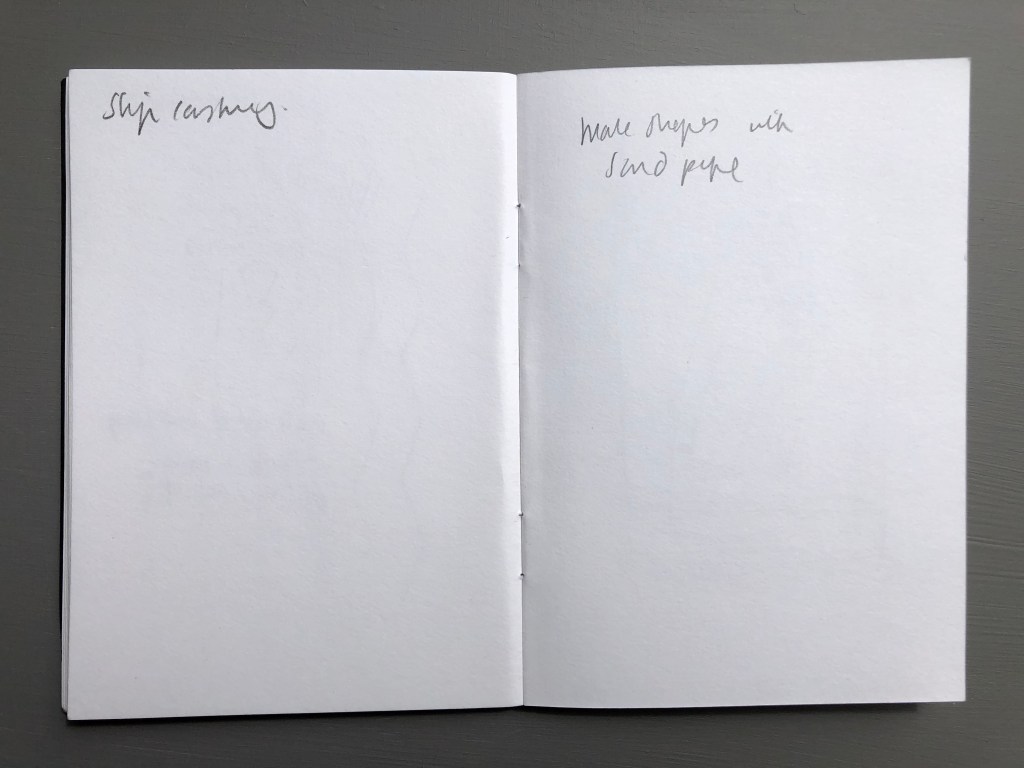 Slip casting.
Make shapes with
sand pipe